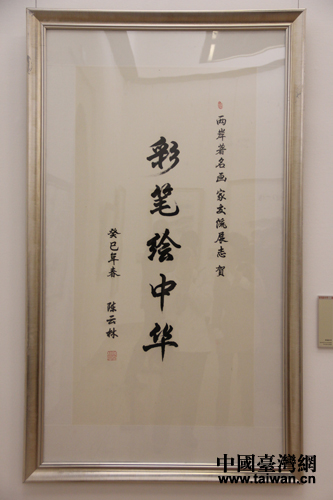 两岸著名画家交流展志贺
彩笔绘中华
癸巳年春 陈云林
中國臺灣網
www.taiwan.cn